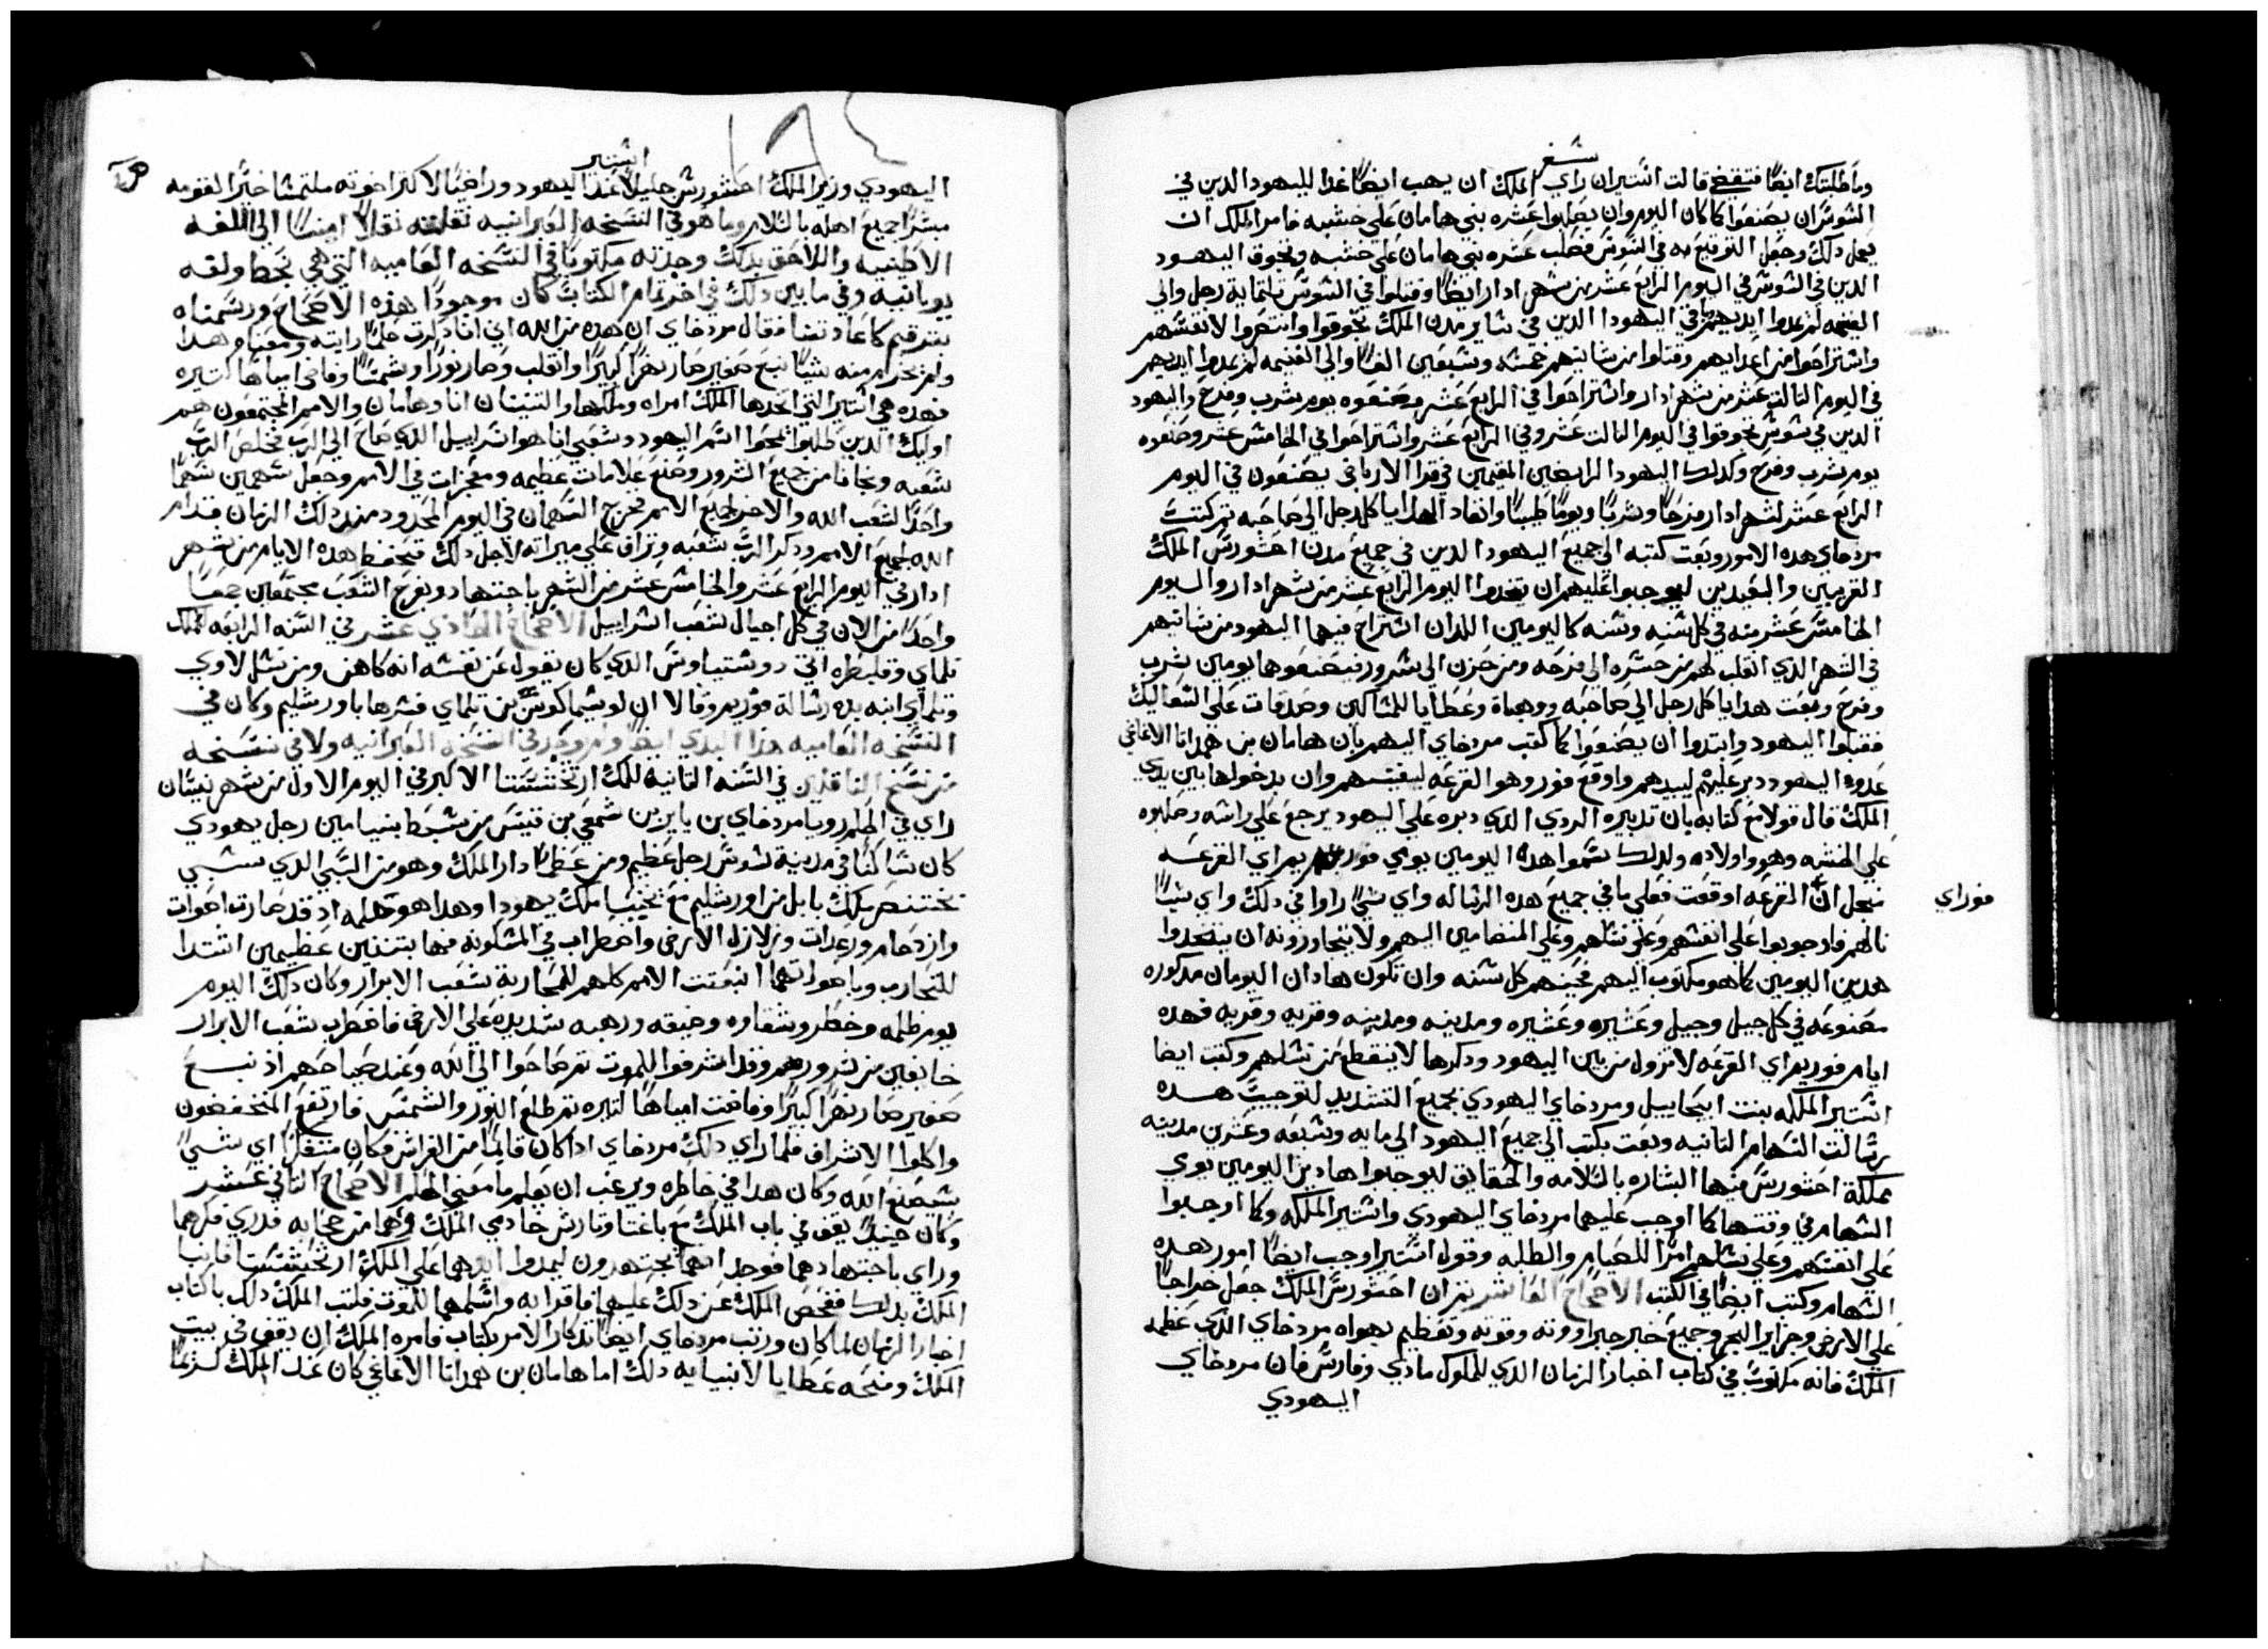 سفر
وما طلبتك ايضًا فتقضي قالت استير ان راي الملك ان يهب ايضًا غدا لليهود الذين في
الشوشن ان يصنعوا كما كان اليوم وان يصلبوا عشره بني هامان على خشبه فامر الملك ان
يعمل ذلك وجعل التوقيع به في الشوشن فصلب عشره بني هامان على خشبه وتجوق اليهود
الذين في الشوش في اليوم الرابع عشر من شهر ادار ايضًا وقتلوا في الشوش تلتماية رجل والي
الغنيمه لم يمدوا ايديهم باقي اليهود الذين في ساير مدن الملك تجوقوا وانتصروا لانفسهم
واستراحوا من اعدايهم وقتلوا من شانيهم خمسه وسبعين الفًا والي الغنيمه لم يمدوا ايديهم
في اليوم الثالث عشر من شهر ادار واستراحوا في الرابع عشر وصنعوه يوم شرب وفرح واليهود
الذين في شوش تجوقوا في اليوم الثالث عشر وفي الرابع عشر واستراحوا في الخامس عشر وصنعوه
يوم شرب وفرح وكدلك اليهود الرابضين المقيمين في قرا الارباض يصنعون في اليوم
الرابع عشر لشهر ادار فرحًا وشربًا ويومًا طيبًا وانفاد الهدايا كل رجل الي صاحبه تم كتب
مردخاي هده الامور وبعت كتبه الي جميع اليهود الدين في جميع مدن احشورش الملك
القريبين والبعيدين ليوجبوا عليهم ان يتخدوا اليوم الرابع عشر من شهر ادار واليوم
الخامس عشر منه في كل سنه وسنه كاليومين اللدان استراح فيهما اليهود من شانيهم
في الشهر الدي انقلب لهم من حسره الي فرحه ومن حزن الي سرور فيصنعوهما يومين شرب
وفرح وبعت هدايا كل رجل الي صاحبه ووهباة وعطايا للمساكين وصدقات على الصعاليك
فقبلوا اليهود وابتدوا ان يصنعوا كما كتب مردخاي اليهم بان هامان بن همداتا الاغاغي
عدوه اليهود دبر عليهم ليبيدهم واوقع فور وهو القرعه ليفنيهم وان بدخولها بين يدي
الملك قال قولا مع كتابه بان تدبيره الردي الدي دبره على اليهود يرجع على راسه وصلبوه
على الخشبه وهو واولاده ولدلك سموا هده اليومين يومي فوريم اي القرعه
من اجل ان القرعه اوقعت فعلى ما في جميع هده الرساله واي شي راوا في دلك واي شيًا
نالهم فاوجبوا على انفسهم وعلى نسلهم وعلى المنضامين اليهم ولا يتجاوزونه ان يتخدوا
هدين اليومين كما هو مكتوب اليهم بحينهم كل سنه وان تكون هادان اليومان مدكوره
مصنوعه في كل جيل وجيل وعشيره وعشيره ومدينه ومدينه وقريه وقريه فهده
ايام فوريم اي القرعه لا تزول من بين اليهود ودكرها لا ينقطع من نسلهم وكتبت ايضا
استير الملكه بنت ابيحاييل ومردخاي اليهودي بجميع التشديد لتوجيب هده
رسالت السهام التانيه وبعت بكتب الي جميع اليهود الي مايه وسبعه وعشرين مدينه
مملكة احشورش منها البشاره بالسلامه والحقايق ليوجبوا هادين اليومين يومي
السهام في وقتها كما اوجب عليهما مردخاي اليهودي واستير الملكه وكما اوجبوا
على انفسهم وعلى نسلهم امرًا للصيام والطلبه وقول استير اوجب ايضًا امور هده
السهام وكتب ايضًا في الكتب الاصحاح العاشر تم ان احشورش الملك جعل خراجًا
على الارض وجزاير البحر وجميع خبر جبراووته وقوته وتعظيم بهواه مردخاي الدي عظمه
الملك فانه مكتوب في كتاب اخبار الزمان الدي لملوك مادي وفارس فان مردخاي
اليهودي
فوراي
استير
اليهودي وزير الملك احشورش جليلًا عند اليهود وراضيًا لاكتر اخوته ملتمسًا خيرًا لقومه
مبشرًا جميع اهله بالسلام وما هو في النسخه العبرانيه نقلته نقلاً امينًا الي اللغه
الاطينيه واللاحق بدلك وجدته مكتوبًا في النسخه العاميه التي هي بخط ولغه
يونانيه وفي ما بين دلك في اخر تمام الكتاب كان موجودًا هذه الاصحاح ورسمناه
بترقيم كما عادتنا فقال مردخاي ان هده من الله اني انا دكرت حلمًا رايته ومعناه هدا
ولم يخرم منه شيًا نبع صغير صار نهرًا كبيرًا وانقلب وصار نورًا وشمسًا وفاض امياهًا كتيره
فهده هي استير التي اخدها الملك امراه وملكها والتنينان انا وهامان والامم المجتمعون هم
اوليك الدين طلبوا يمحوا اسم اليهود وشعبي انا هو اسراييل الدي صاح الي الرب فخلص الرب
شعبه ونجانا من جميع الشرور وصنع علامات عظيمه ومعجزات في الامم وجعل سهمين سهمًا
واحدًا لشعب الله والاخر لجميع الامم فخرج السهمان في اليوم المحدود مند دلك الزمان قدام
الله لجميع الامم ودكر الرب شعبه وتراف على ميراته لاجل دلك فتحفظ هده الايام من شهر
ادار في اليوم الرابع عشر والخامس عشر من الشهر باجتهاد وبفرح الشعب مجتمعين جمعًا
واحدًا من الان في كل اجيال لشعب اسراييل الاصحاح الحادي عشر في السنه الرابعه لملك
تلماي وقلبطره اتي دوسيتاوس الدي كان يقول عن نفسه انه كاهن ومن نسل لاوي
وتلماي ابنه بهده رسالة فوريم وقالا ان لوسيماكوس بن تلماي فسرها باورشليم وكان في
النسخه العاميه هذا البدي ايضًا ولم يوجد في النسخه العبرانيه ولا في نسخه
من نسخ الناقلين في السنه التانيه للملك ارتخشتشتا الاكبر في اليوم الاول من شهر نيسان
راي في الحلم رويا مردخاي بن ياير بن شمعي بن قيس من سبط بنيامين رجل يهودي
كان ساكنًا في مدينة شوش رجل عظيم ومن عظما دار الملك وهو من السبي الدي سبي
بختنصر ملك بابل من اورشليم مع يخنيا ملك يهودا وهدا هو حلمه اد قد صارت اصوات
وازدحام ورعدات وزلازل الارض واضطراب في المسكونه فيها بتنينين عظيمين ابتدا
للتحارب وباصواتهما انبعقت الامم كلهم لمحاربة شعب الابرار وكان دلك اليوم
يوم ظلمه وخطر وشقاوه وضيقه ورهبه شديده على الارض فاضطرب شعب الابرار
خايفين من شرورهم وقد اشرفوا للموت تم صاحوا الي الله وعند صياحهم اذ نبع
صغير صار نهرًا كبيرًا وفاضت امياهًا كتيره تم طلع النور والشمس فارتفع المنخفضون
واكلوا الاشراف فلما راي دلك مردخاي ادا كان قايمًا من الفراش فكان متفكرًا اي شي
يصنع الله وكان هدا في خاطره ويرغب ان يعلم ما معني الحلم الاصحاح التاني عشر
وكان حينيد يقف في باب الملك مع باغتا وتارش خادمي الملك وهما من حجابه فدري فكرهما
وراي باجتهادهما فوجد انهما يجتهدون ليمدوا ايديهما على الملك ارتخشتشتا فانبا
الملك بدلك ففحص الملك عن دلك عليهما فاقرا به واسلمهما للموت فكتب الملك دلك بكتاب
اخبار الزمان لما كان ورتب مردخاي ايضًا تدكار الامر بكتاب فامره الملك ان يقف في بيت
الملك ومنحه عطايا لانبيايه دلك اما هامان بن همداتا الاغاغي كان عند الملك كريمًا